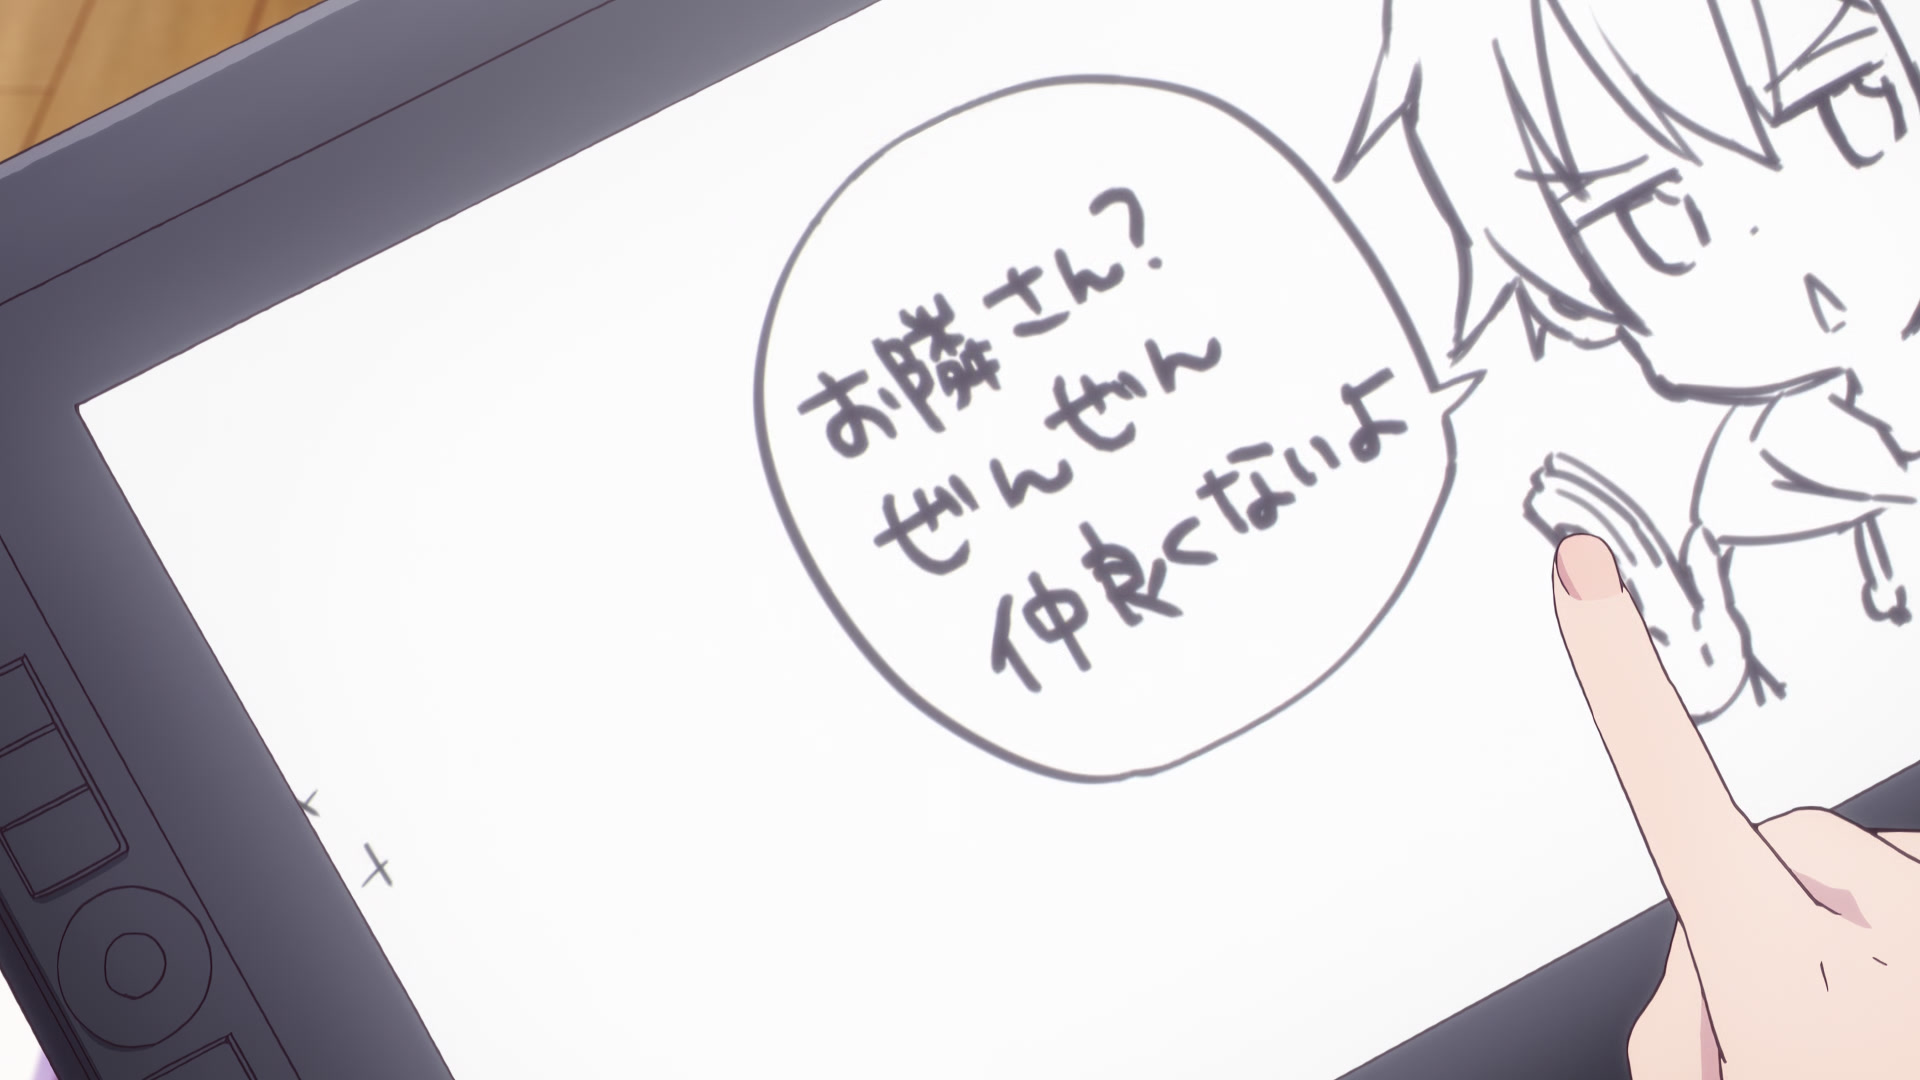 お隣さん?
ぜんぜん
仲良くないよ